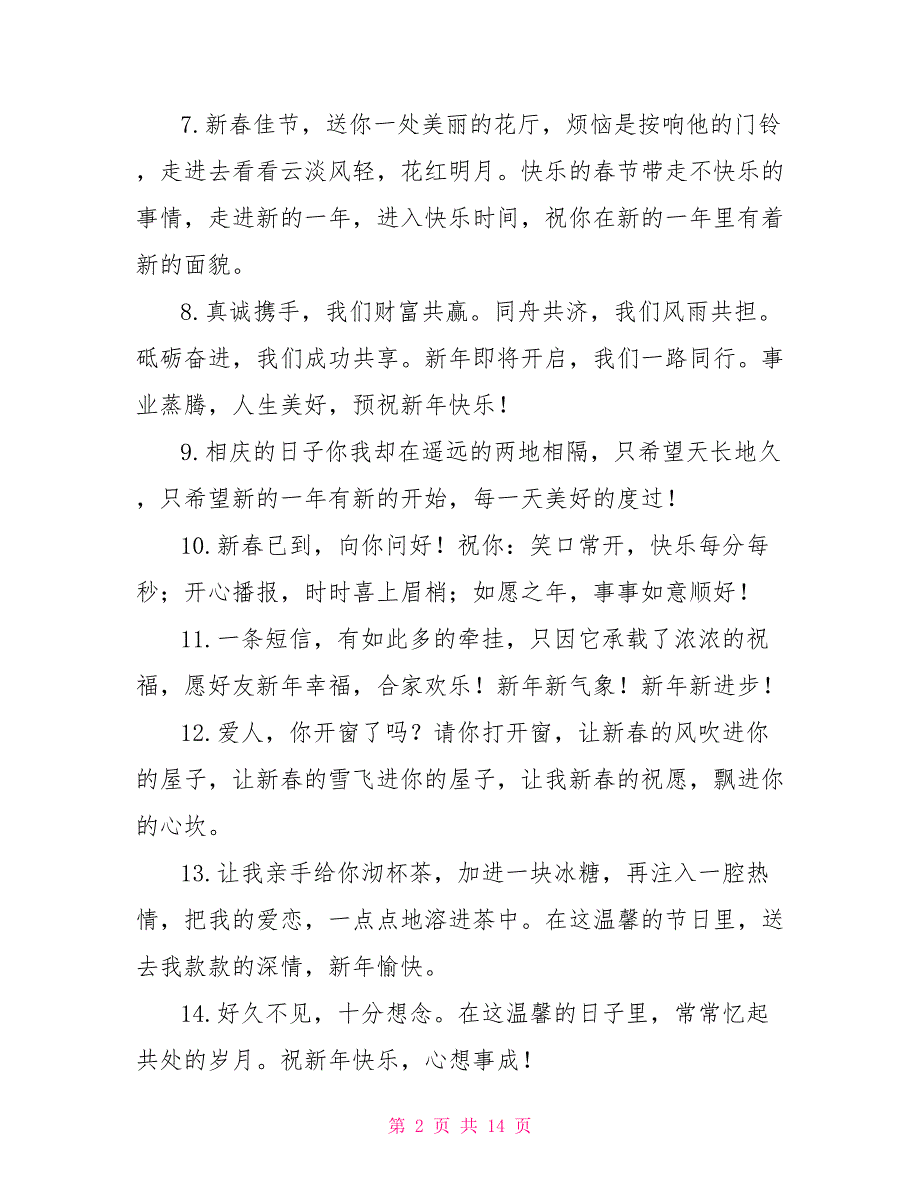 7.新春佳节，送你一处美丽的花厅，烦恼是按响他的门铃
，走进去看看云淡风轻，花红明月。快乐的春节带走不快乐的
事情，走进新的一年，进入快乐时间，祝你在新的一年里有着
新的面貌。
8.真诚携手，我们财富共赢。同舟共济，我们风雨共担。
砥砺奋进，我们成功共享。新年即将开启，我们一路同行。事
业蒸腾，人生美好，预祝新年快乐！
9.相庆的日子你我却在遥远的两地相隔，只希望天长地久
，只希望新的一年有新的开始，每一天美好的度过！
10.新春已到，向你问好！祝你：笑口常开，快乐每分每
秒；开心播报，时时喜上眉梢；如愿之年，事事如意顺好！
11.一条短信，有如此多的牵挂，只因它承载了浓浓的祝
福，愿好友新年幸福，合家欢乐！新年新气象！新年新进步！
12.爱人，你开窗了吗？请你打开窗，让新春的风吹进你
的屋子，让新春的雪飞进你的屋子，让我新春的祝愿，飘进你
的心坎。
13.让我亲手给你沏杯茶，加进一块冰糖，再注入一腔热
情，把我的爱恋，一点点地溶进茶中。在这温馨的节日里，送
去我款款的深情，新年愉快。
14.好久不见，十分想念。在这温馨的日子里，常常忆起
共处的岁月。祝新年快乐，心想事成！
第 2 页 共 14 页